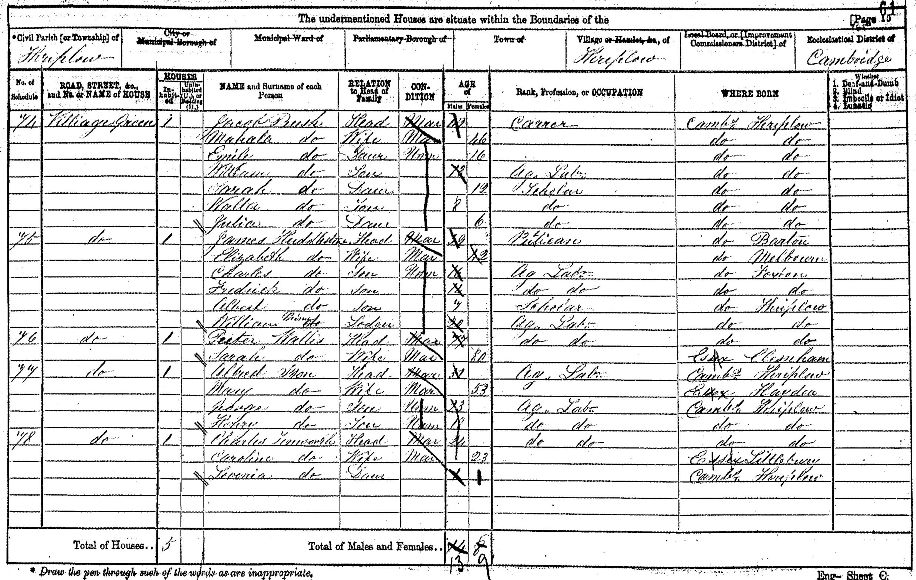 61
The undermentioned Houses are situate within the Boundaries of the [Page 15
*Civil Parish [or Township] of City or Municipal Borough of Municipal Ward of Parliamentary Borough of Town of Village or Hamlet, &c., of Local Board, or [Improvement Commissioners District] of Ecclesiastical District of
Thriplow Thriplow Cambridge
No. of Schedule ROAD, STREET, &c., and No. or NAME of HOUSE HOUSES In-habit-ed Unin-habited (U.), or Building (B.) NAME and Surname of each Person RELATION to Head of Family CON-DITION AGE of Males Females Rank, Profession, or OCCUPATION WHERE BORN Whether 1. Deaf-and-Dumb 2. Blind 3. Imbecile or Idiot 4. Lunatic
74 Village Green 1 Jacob Head Mar Carrer Camb's Thriplow
Mahala do Wife Mar 46 do do
Emile do Daur Unm 16 do do
William do Son Ag. Lab. do do
Sarah do Daur 12 Scholar do do
Walter do Son 8 do do do
Julia do Daur 6 do do do
75 do 1 James Head Mar do Barton
Elizabeth do Wife Mar 42 do Melbourn
Charles do Son Unm Ag Lab. do Foxton
Fredrick do Son do do do do
Albert do Son 7 Scholar do Thriplow
William Lodger Ag. Lab. do do
76 do 1 Peter Wallis Head Mar do do do do
Sarah do Wife Mar 80 Essex
77 do 1 Alfred Head Mar Ag. Lab. Camb's Thriplow
Mary do Wife Mar 53 Essex Haydon
George do Son Unm Ag. Lab. Camb's Thriplow
Henry do Son Unm 18 do do do do
78 do 1 Charles Head Mar do do do do
Caroline do Wife Mar 23 Essex Littlebury
do Daur 1 Camb's Thriplow
Total of Houses.. 5 Total of Males and Females.. 14 8
13 9
* Draw the pen through such of the words as are inappropriate.
Eng- Sheet C.